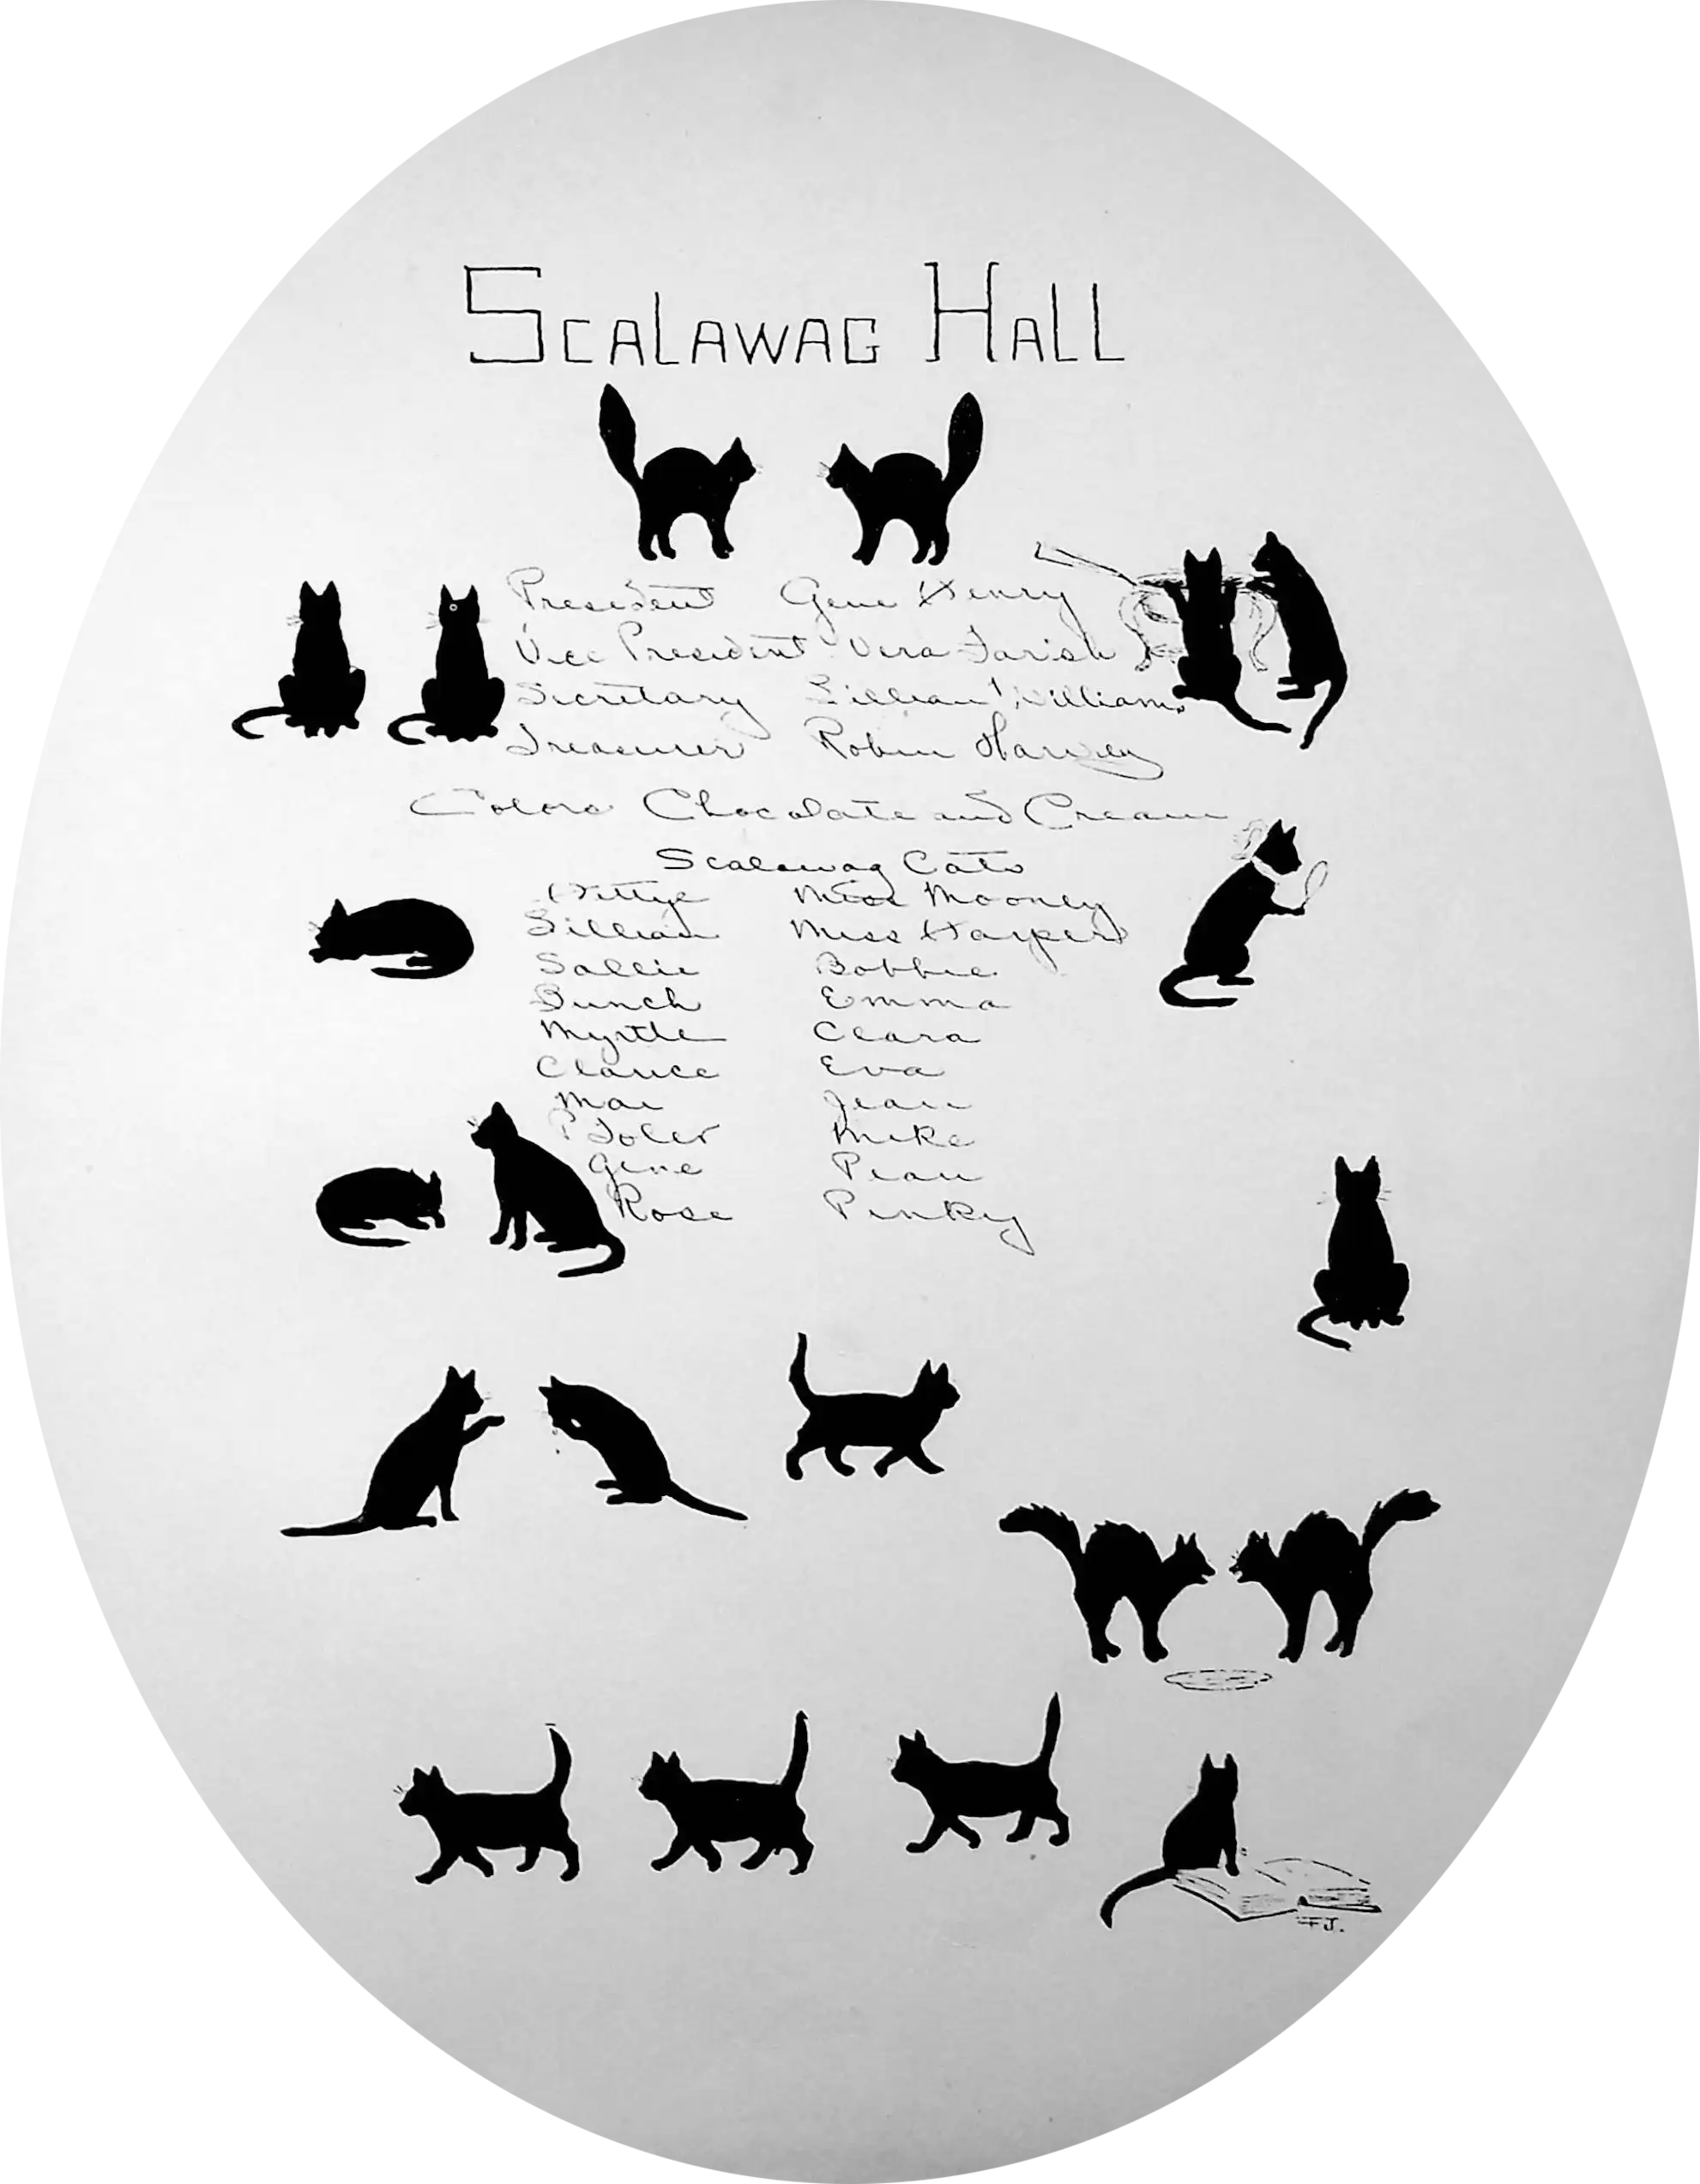 Scalawag Hall
President Gene Henry
Vice President Vera Farish
Secretary Lillian Williams
Treasurer Robin Harvey
Colors Chocolate and Cream
Scalawag Cats
Miss Mooney
Lillian Miss Harper
Sallie Bobbie
Bunch Emma
Myrtle Clara
Eva
Mai Jean
P Toler Mike
Gene
Rose Pinky
FJ.